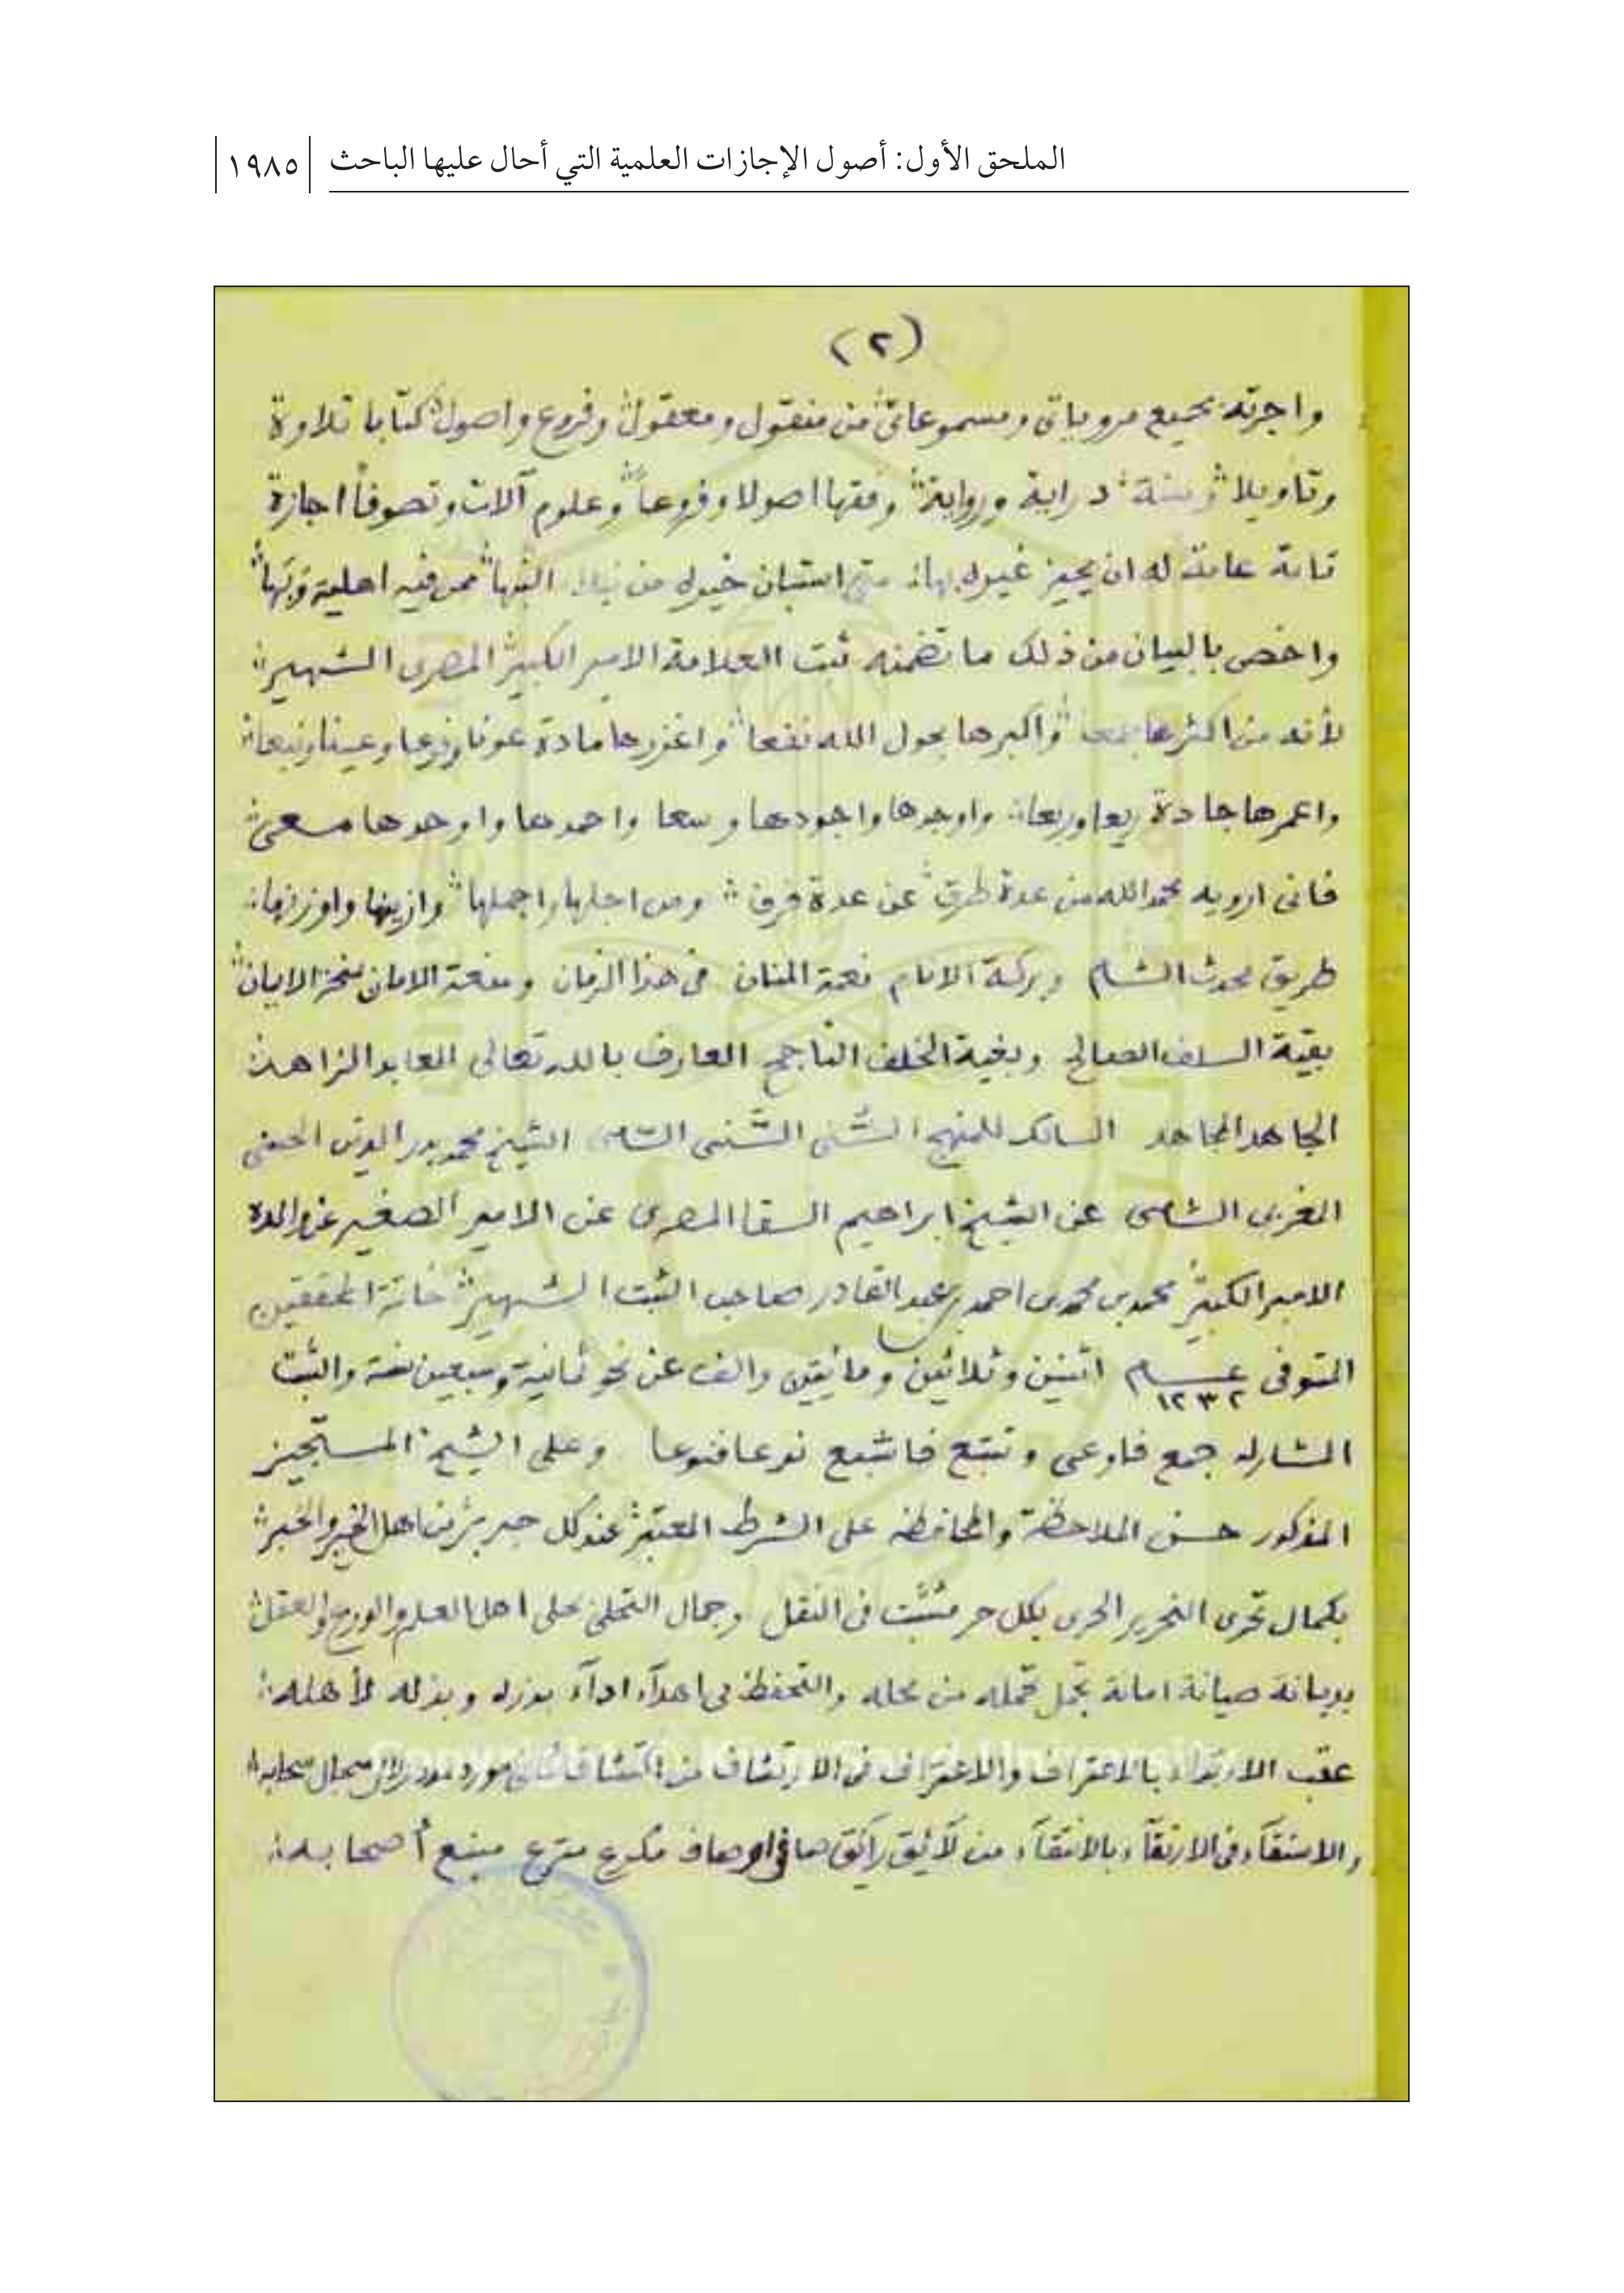 الملحق الأول: أصول الإجازات العلمية التي أحال عليها الباحث ١٩٨٥
(٢)
واجزته بجميع مروياتى ومسموعاتى من منقول ومعقول وفروع واصول كتابا تلاوة
وتأويلا وسنة دراية ورواية وفقها اصولا وفروعا وعلوم آلات وتصوفا اجازة
تامة عامة له ان يجيز غيره بها متى استبان خيره من النبها ممن فيه اهلية
واخص بالبيان من ذلك ما تضمنه ثبت العلامة الامير الكبير المصرى الشهير
لأنه من اكثرها جمعا واكبرها بحول الله نفعا واغزرها مادة عونا وعينا ونبعا
واعمرها جادة ريعا وربعا واوجدها واجودها وسعا واحمدها واوحدها مسعى
فانى ارويه بحمد الله من عدة طرق عن عدة فرق ومن اجلها واجملها وازينها
طريق محدث الشام وبركة الانام نعمة المنان فى هذا الزمان الامان
بقية السلف الصالح وبغية الخلف الناجح العارف بالله تعالى العابد الزاهد
الجاهد المجاهد السالك للمنهج السنى السنى الشيخ محمد بدر الدين الحسنى
المغربى الشامى عن الشيخ ابراهيم السقا المصرى عن الامير الصغير عن والده
الامير الكبير محمد بن محمد بن احمد بن عبد القادر صاحب الثبت الشهير خاتمة المحققين
المتوفى عام ١٢٣٢ اثنين وثلاثين ومائتين والف عن نحو ثمانية وسبعين سنة والثبت
المشار له جمع فاوعى وتتبع فاشبع نوعا فنوعا وعلى الشيخ المستجيز
المذكور حسن الملاحظة والمحافظه على الشرط المعتبر عند كل حبر من اهل الخير والخبر
بكمال تحرى التحرير الحرى بكل حر مثبت فى النقل وجمال التحلى بحلى اهل العلم والورع والعقل
بديانة صيانة امانة تحمله من محله والتحفظ اداء وبذله لأهله
عقب بالاعتراف والاغتراف فى الارتشاف من
والاستقاء فى الارتقاء بالانتقاء من رائق صافى مكرع مترع منبع أصحابه